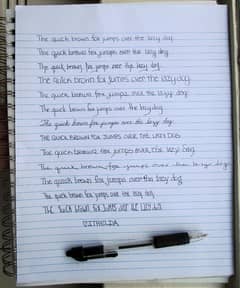 The quick brown fox jumps over the lazy dog
The quick brown fox jumps over the lazy dog
The quick brown fox jumps over the lazy dog.
The quick brown fox jumps over the lazy dog.
The quick brown fox jumps over the lazy dog
The quick brown fox jumps over the lazy dog
The quick brown fox jumps over the lazy dog
THE QUICK BROWN FOX JUMPS OVER THE LAZY DOG
The quick brown fox jumps over the lazy dog.
The quick brown fox jumps over the lazy dog
The quick brown fox jumps over the lazy dog
The quick brown fox jumps over the lazy dog.
The quick brown fox jumps over the lazy dog